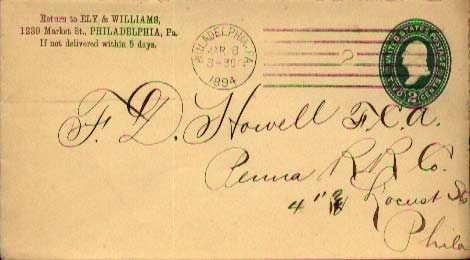 Return to ELY & WILLIAMS,
1239 Market St., PHILADELPHIA, Pa.
If not delivered within 5 days.
PHILADELPHIA, PA.
8
1894
2
UNITED STATES POSTAGE
TWO 2 CENTS
F. D. Howell F.C.A.
Penna R R Co.
4" & Locust Sts
Phila